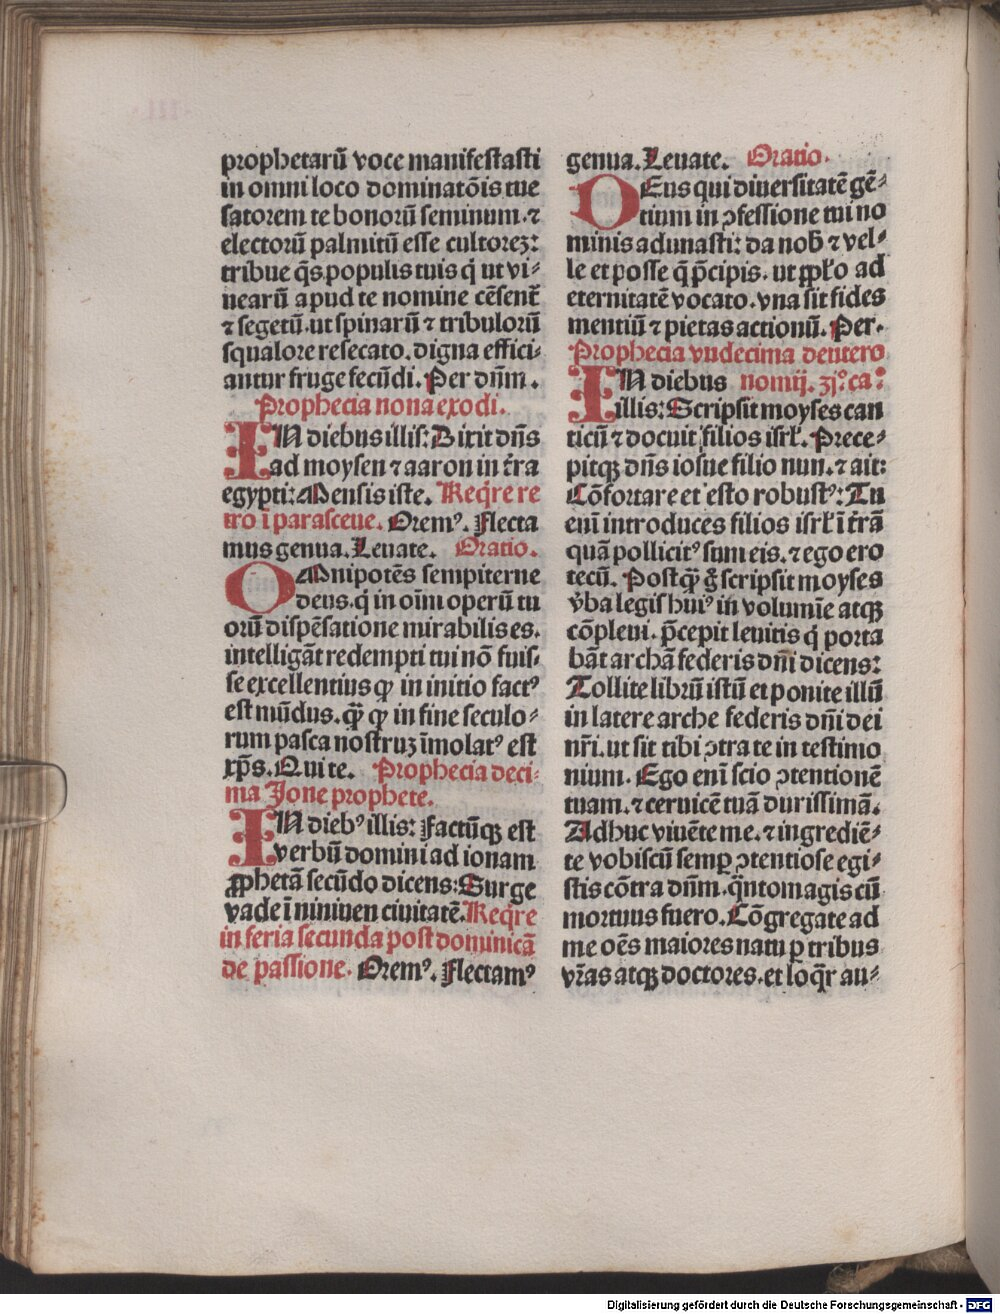 prophetarū voce manifestasti
in omni loco dominatōis tue
satorem te bonorū seminum.⁊
electorū palmitū esse cultorez:
tribue q̄s populis tuis q̇ ut vi⸗
nearū apud te nomine cēsent᷑
⁊ segetū.ut spinarū ⁊ tribulorū
squalore resecato.digna effici⸗
antur fruge fecūdi. Per dn̄m.
Prophecia nona exodi.
IN diebus illis: Dixit dn̄s
ad moysen ⁊ aaron in t̄ra
egypti: Mensis iste. Req̇re re
tro ī parasceue. Oremꝰ. Flecta
mus genua. Leuate. Oratio.
OMnipotēs sempiterne
deus.q̇ in oīm operū tu
orū dispēsatione mirabilis es.
intelligāt redempti tui nō fuis⸗
se excellentius ꝙ in initio factꝰ
est mūdus. q̄ꝫ ꝙ in fine seculo⸗
rum pasca nostruz īmolatꝰ est
xp̄s. Qui te. Prophecia deci⸗
ma Jone prophete.
IN diebꝰ illis: Factūqꝫ est
verbū domini ad ionam
ꝓphetā secūdo dicens: Surge
vade ī niniuen ciuitatē. Req̇re
in feria secunda post dominicā
de passione. Oremꝰ. Flectamꝰ
genua. Leuate. Oratio.
DEus qui diuersitatē gē⸗
tium in ꝯfessione tui no
minis adunasti: da nob̄ ⁊ vel⸗
le et posse q̄ p̄cipis. ut pp̄lo ad
eternitatē vocato. vna sit fides
mentiū ⁊ pietas actionū. Per.
Prophecia vndecima deutero
IN diebus nomij. ꝫj°. ca:
illis: Scripsit moyses can
ticū ⁊ docuit filios isrl̄. Prece⸗
pitqꝫ dn̄s iosue filio nun. ⁊ ait:
Cōfortare et esto robustꝰ: Tu
enī introduces filios isrl̄ ī t̄rā
quā pollicitꝰ sum eis. ⁊ ego ero
tecū. Postq̄ꝫ g̊ scripsit moyses
v̄ba legis huiꝰ in volumīe atqꝫ
cōpleui. p̄cepit leuitis q̇ porta
bāt archā federis dn̄i dicens:
Tollite librū istū et ponite illū
in latere arche federis dn̄i dei
nr̄i. ut sit tibi ꝯtra te in testimo
nium. Ego enī scio ꝯtentionē
tuam. ⁊ ceruicē tuā durissimā.
Adhuc viuēte me. ⁊ ingrediē⸗
te vobiscū semꝑ ꝯtentiose egi⸗
stis cōtra dn̄m. q̄ntomagis cū
mortuus fuero. Cōgregate ad
me oēs maiores natu ꝑ tribus
vr̄as atqꝫ doctores. et loq̇r au⸗
Digitalisierung gefördert durch die Deutsche Forschungsgemeinschaft - DFG